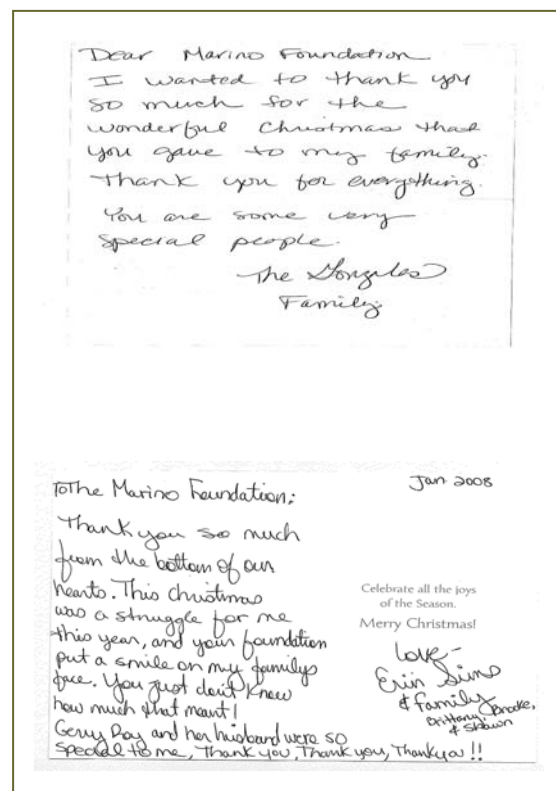 Dear Marino Foundation
I wanted to thank you
so much for the
wonderful Christmas that
you gave to my family.
Thank you for everything.
You are some very
special people.
The Gonzales
Family
Jan 2008
To The Marino Foundation:
Thank you so much
from the bottom of our
hearts. This christmas
was a struggle for me
this year, and your foundation
put a smile on my familys
face. You just don't know
how much that meant!
Gerry Ray and her husband were so
special to me, Thank you, Thank you, Thankyou!!
Celebrate all the joys
of the Season.
Merry Christmas!
Love-
Erin Sims
& family
Brooke,
Brittany,
& Shawn